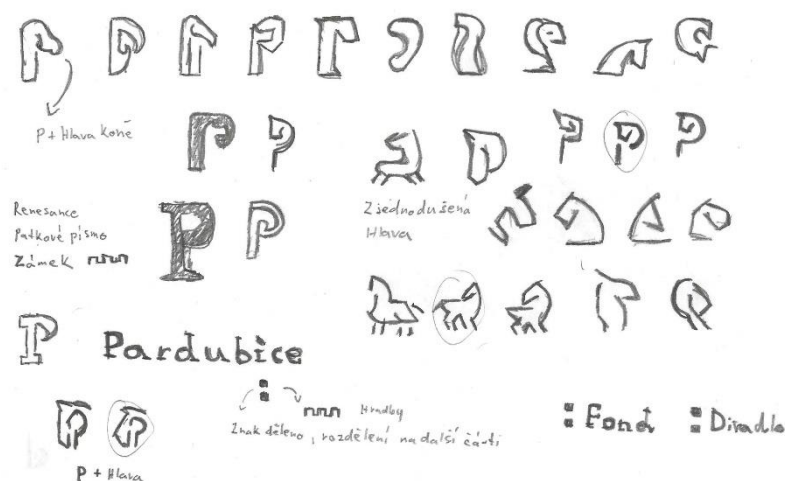 P + Hlava koně
Renesance
Patkové písmo
Zámek
Zjednodušená
Hlava
Pardubice
Hradby
Znak děleno, rozdělení na další části
P + Hlava
: Fond
: Divadlo